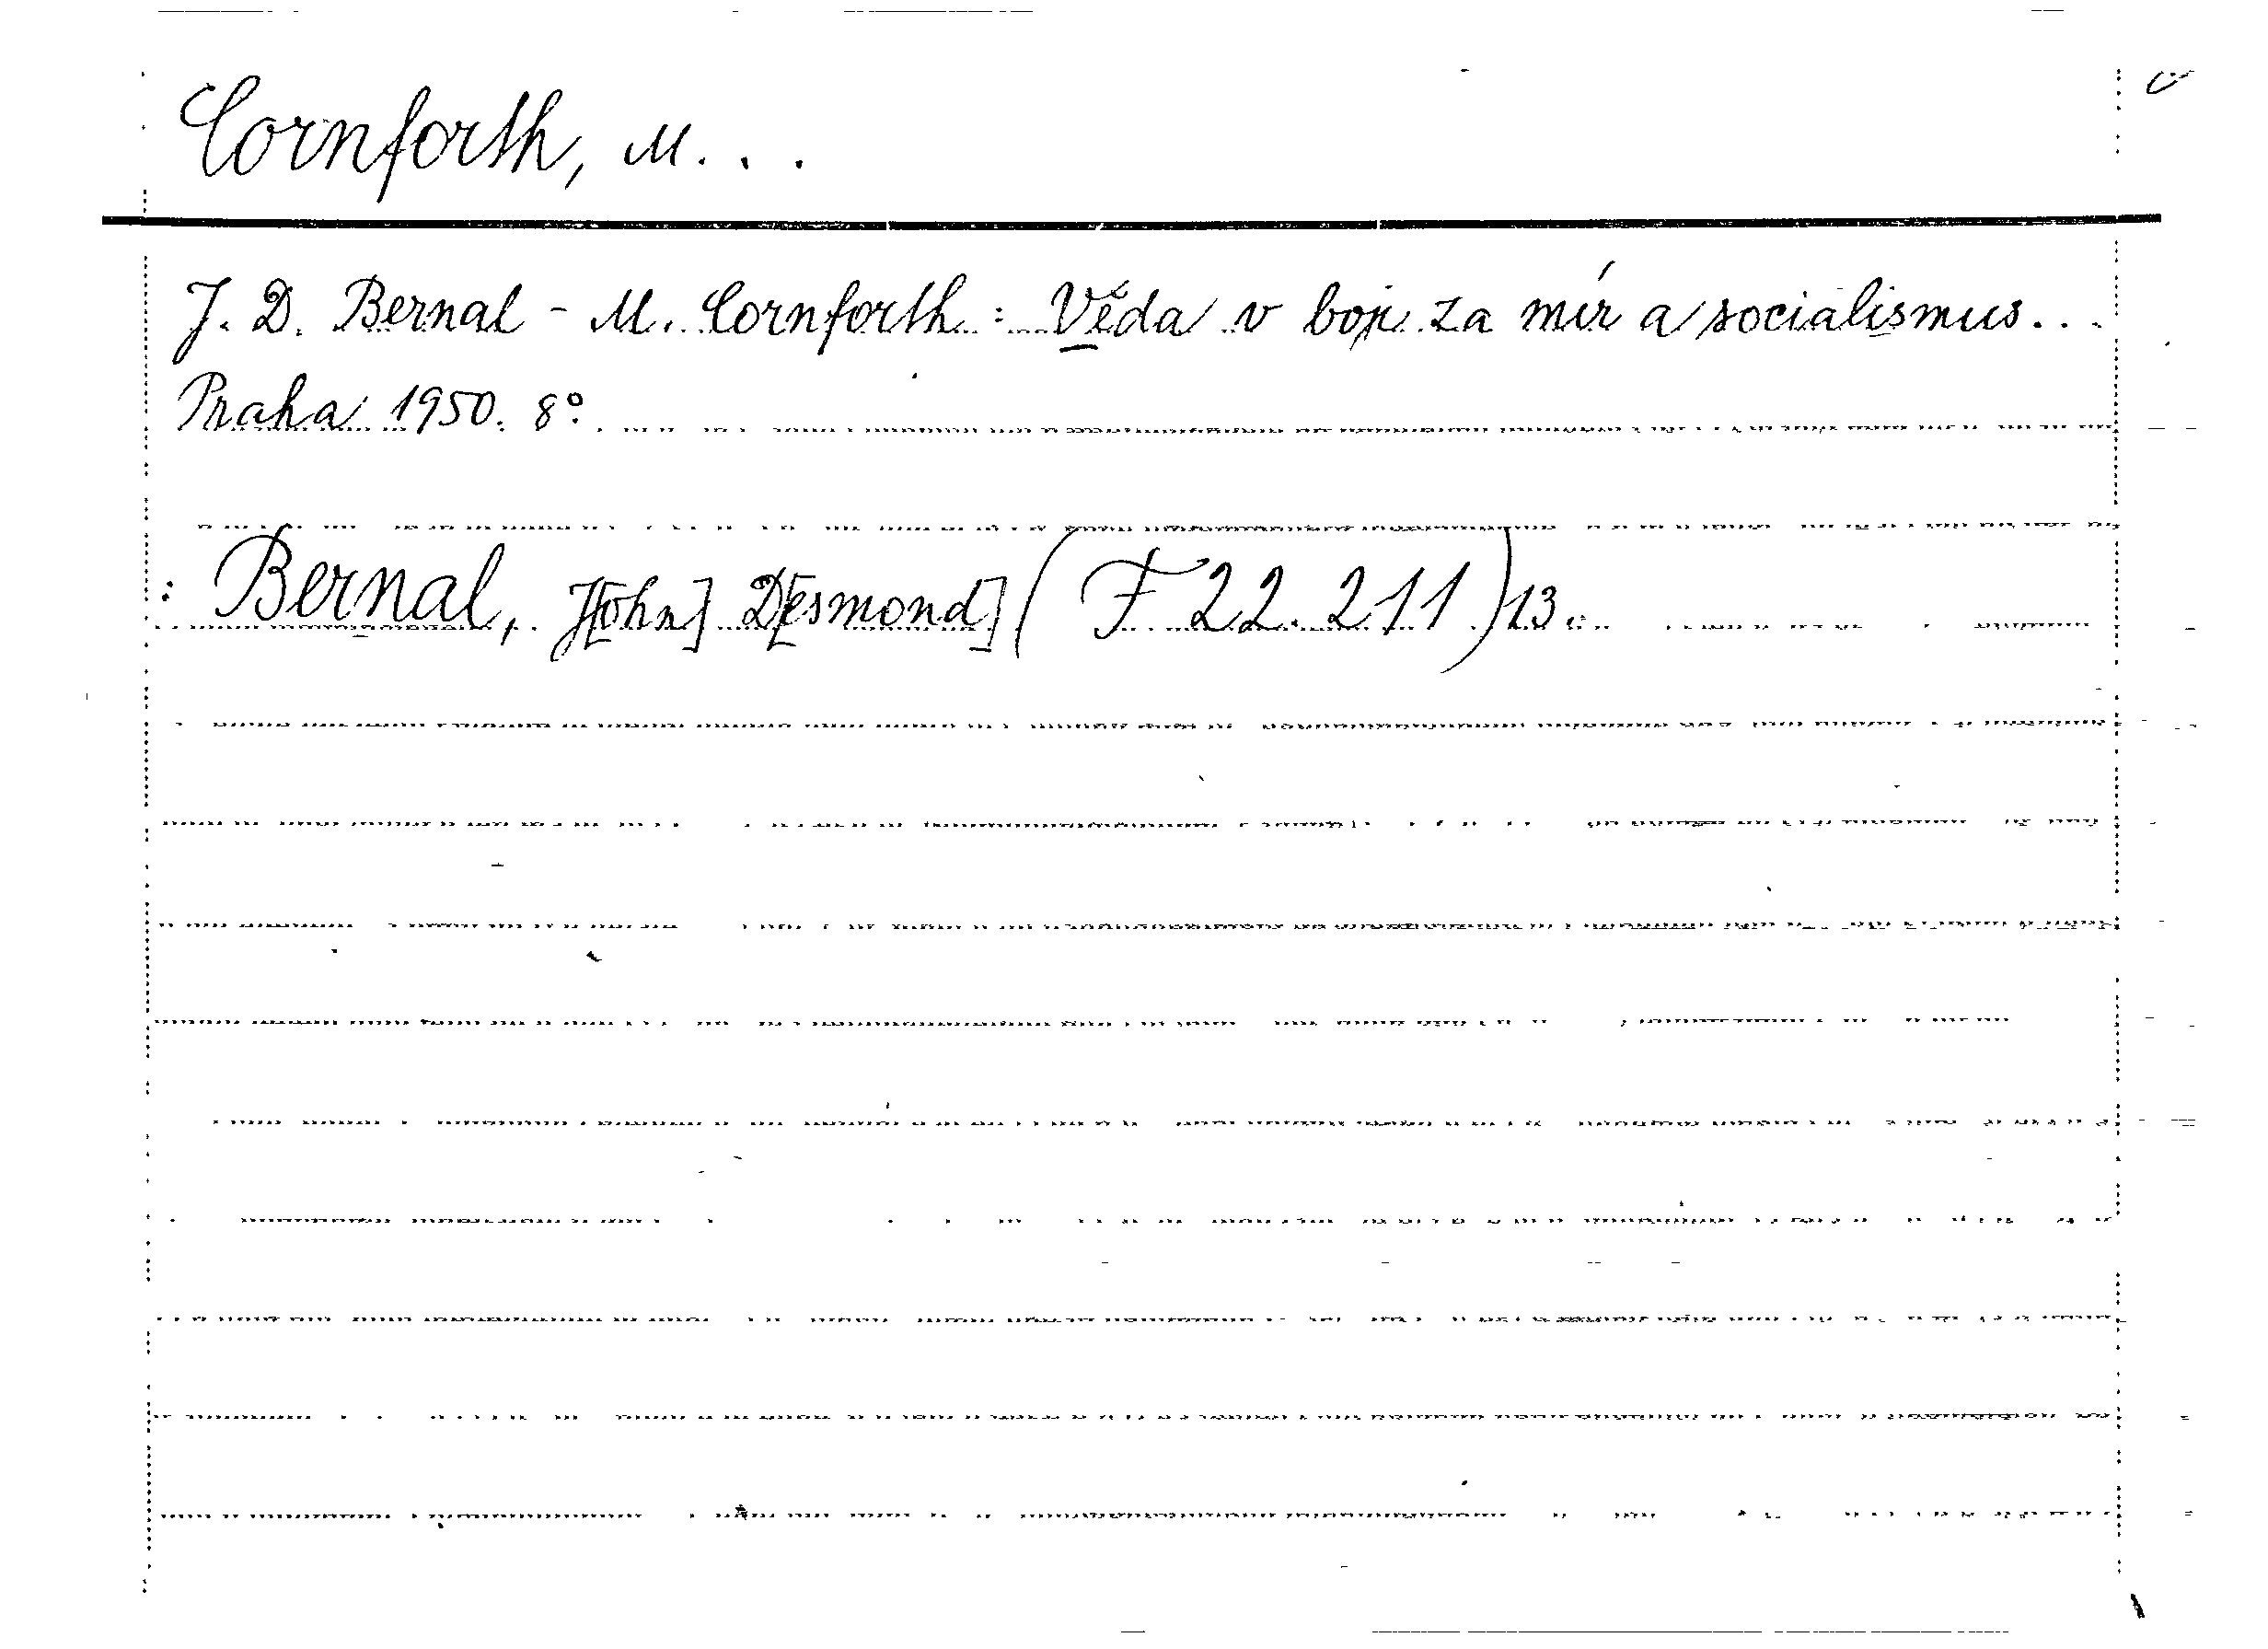 Cornforth, M. . .
J. D. Bernal - M. Cornforth: Věda v boji za mír a socialismus...
Praha 1950. 8°.
: Bernal, J[ohn] D[esmond] (F 22.211)13.